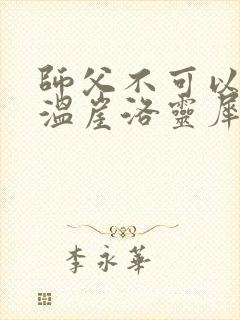 師父不可以
溫崖洛靈犀
李永華